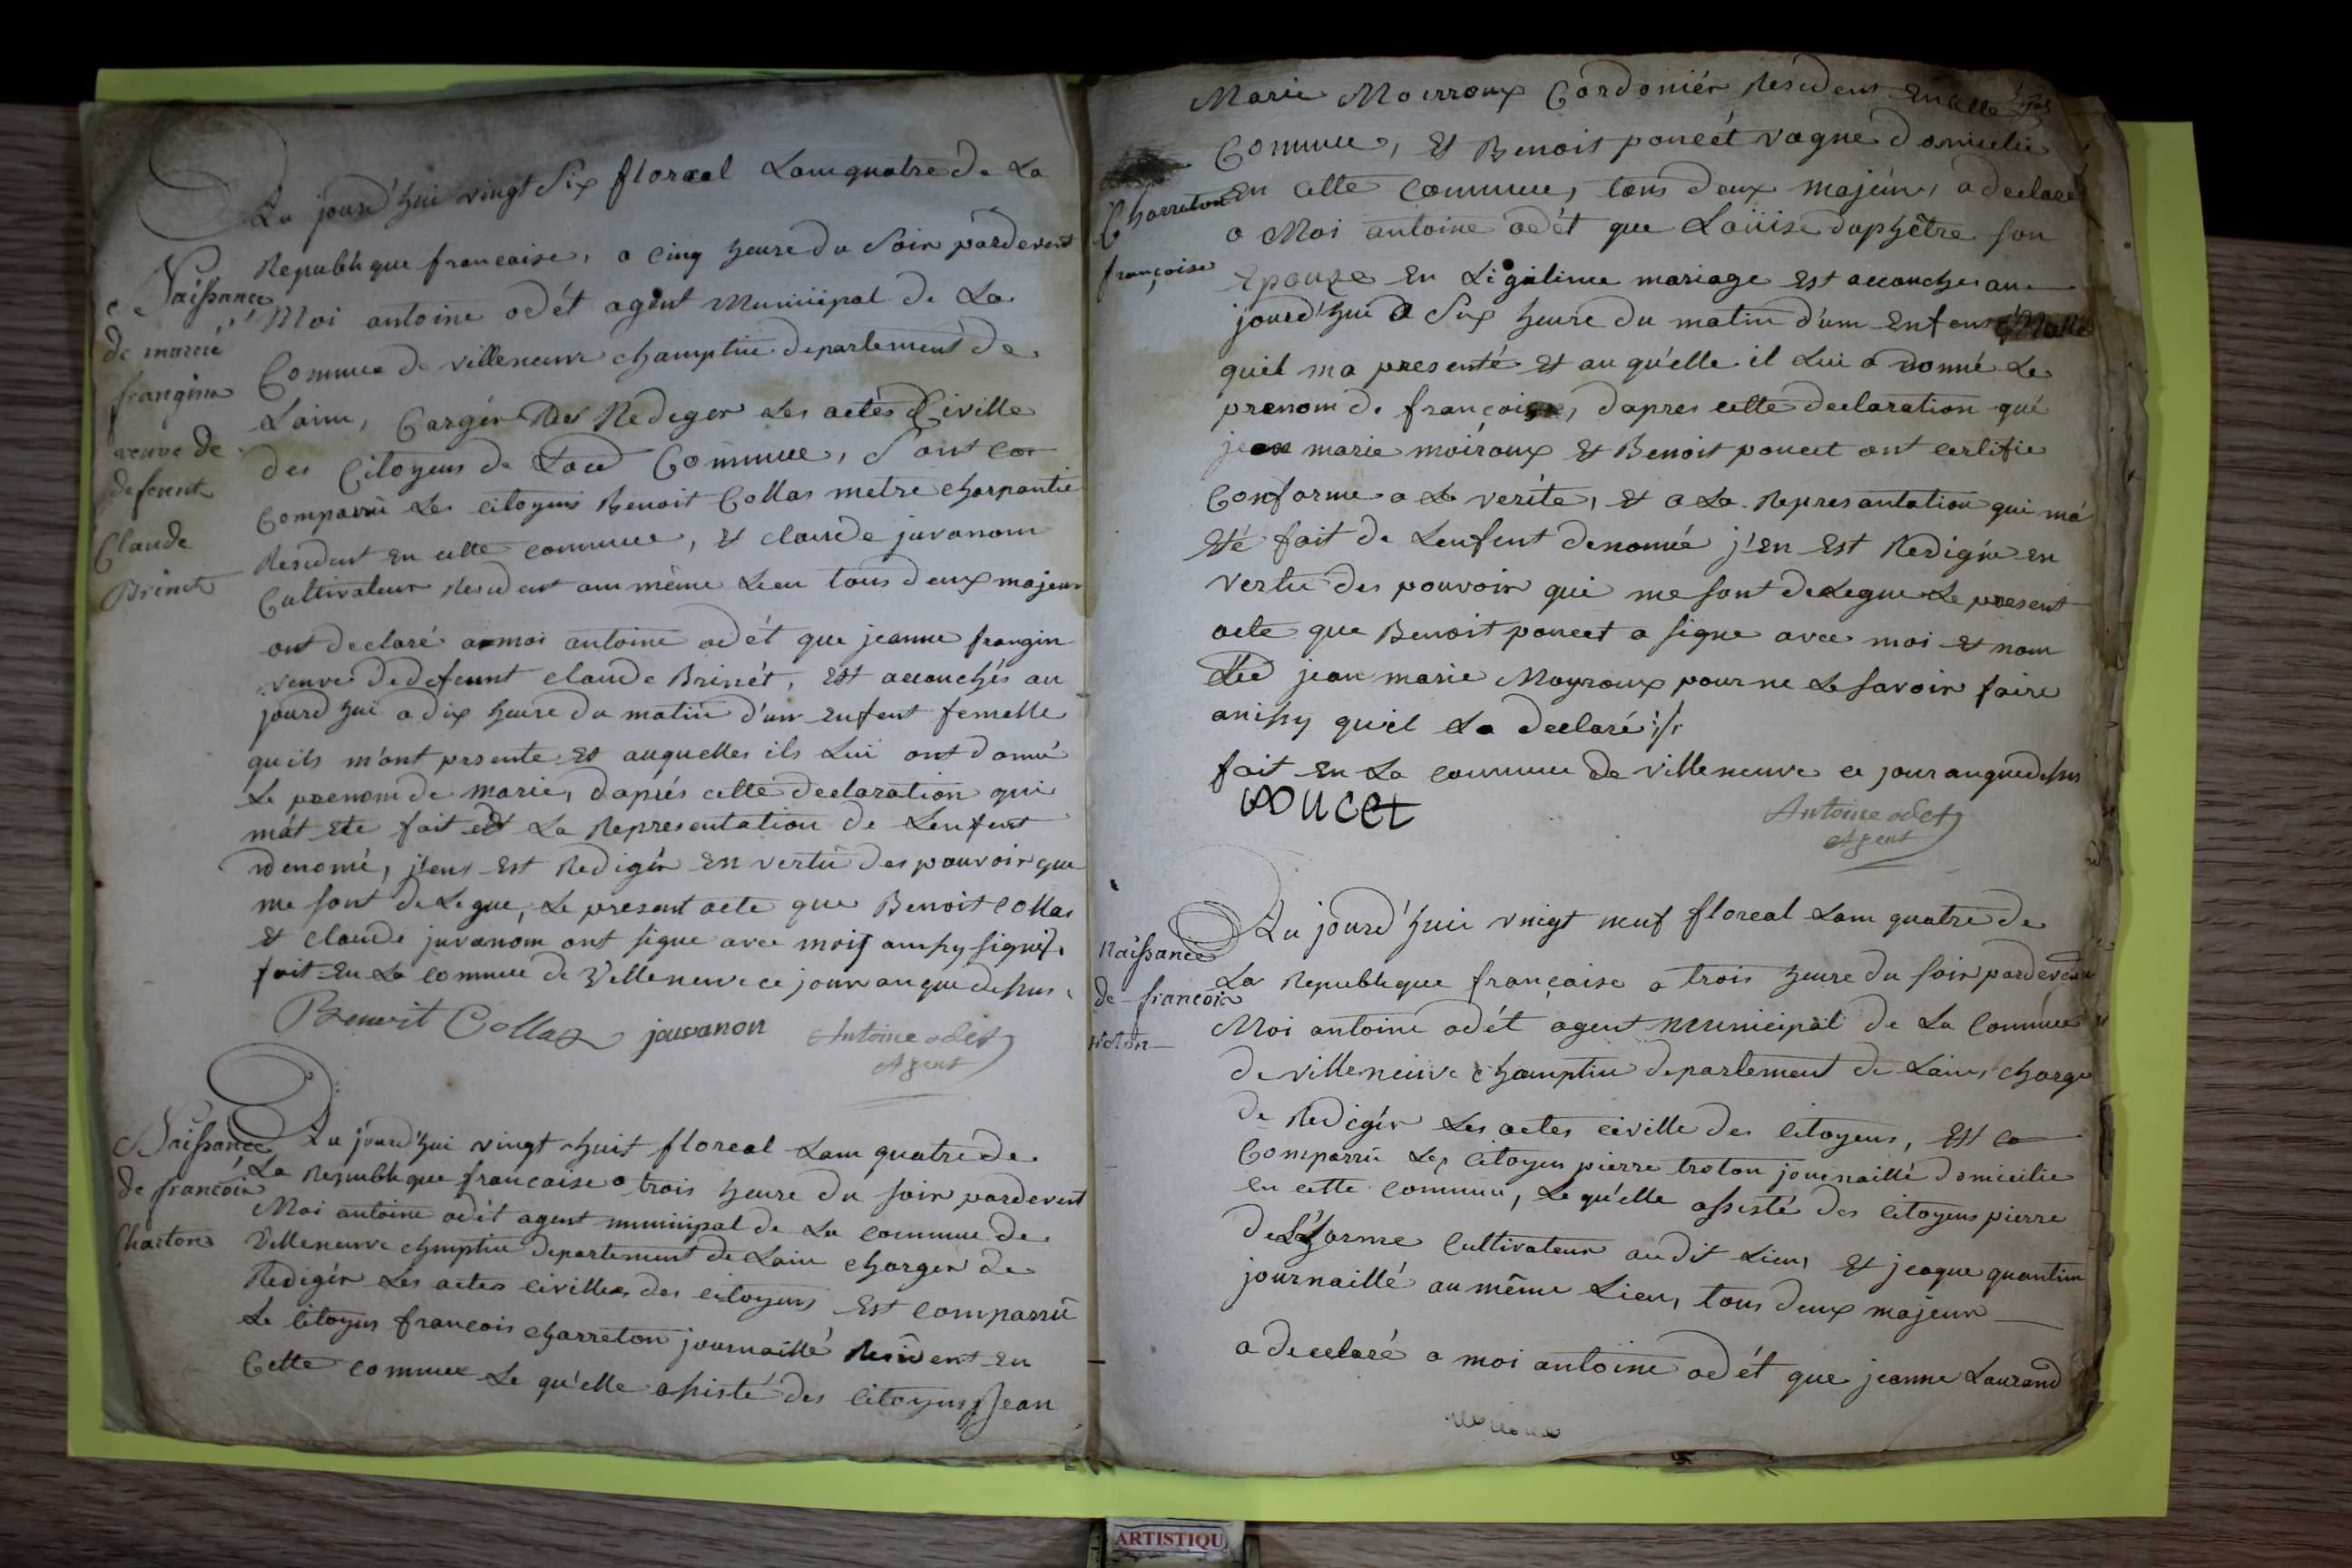 Au jourd'hui vingt Six floreal Lam quatre De La
Republique francaise, a cinq heure Du Soir pardevent
Moi antoine odét agent Municipal De La
Commue De villeneuve champtin departement De
Laim, Cargér Des Rediger Les actés Civille
Des Citoyens De Commue, Sont con
Comparrù Les citoyens Benoit Collas metre charpantié
Resident En cette commue, Et claude juvanom
Cultivateur Resident au même Lieu tous Deux majeur
ont Declaré a moi antoine odét que jeanne frangin
veuve De defeunt claude Brinét, Est accouchés au
jourd hui a dix heure Du matin d'un Enfent femelle
quils m'ont presente Et auquelles ils Lui ont donné
Le prenom De marie, daprés cette Declaration qui
mát Ete fait et La Representation De Lenfent
denomé, j'ens Est Redigér En vertù Des pouvoir que
me sont DeLegue, Le present acte que Benoit Collas
Et claude juvanom ont signe avec mois ainsy signés.
fait En La commue De Villeneuve ce jour an que dessus
Benoit Collas jouvanon Antoine odet
Agent
Naissance
de marie
frangin
veuve de
defeunt
Claude
Brinet
Au jourd'hui vingt huit floreal Lam quatre De
La Republique francaise a trois heure Du soir pardevent
Moi antoine odét agent municipal De La commue De
Villeneuve chmptin Departement De Laim charger De
Redigér Les actes civilles Des citoyens Est comparrù
Le Citoyen francois charreton journaillé Resident En
Cette commue Le qu'elle assisté Des Citoyens Jean
Naissance
De francois
Charton
Marie Moirroux Cordoniér Resident En cette
Commue, Et Benoit poncét vagné Domicilié
En cette commue, tous Deux majeur, a declaré
a Moi antoine odét que Loüise duphêtre son
Epouze En Ligitime mariage Est accouches au
jourd'hui a Six heure Du matin d'um Enfent
quil ma presenté Et au qu'elle il Lui a donné Le
prenom De françoise, dapres cette declaration que
jean marie moiroux Et Benoit poncet ont certifie
Conforme a La verite, Et a La Represantation qui má
Eté fait De Lenfent denomé j'En Est Redigér En
vertu Des pouvoir qui me sont DeLegue Le present
acte que Benoit poncet a signe avec moi Et nom
Led jean marie Moyroux pour ne Le savoir faire
ainsy quil La Declaré
fait En La commue De villeneuve ce jour an que dessus
poucet Antoine odet
Agent
Charreton
françoise
Au jourd'hui vingt neuf floreal Lam quatre De
La Republique française a trois heure Du soir pardevent
Moi antoine odét agent municipal De La Commue
De villeneuve champtin departement De Laim, charge
De Redigér Les actes civille Des citoyens, Est co
Comparrù Le Citoyen pierre troton journaillé Domicilie
en cette commue, Le qu'elle assisté Des Citoyens pierre
Delaforme Cultivateur audit Lieu, Et jeaque quantin
journaillé au même Lieu, tous Deux majeur
a Declaré a moi antoine odét que jeanne Laurand
Naissance
De francois
troton
ARTISTIQU